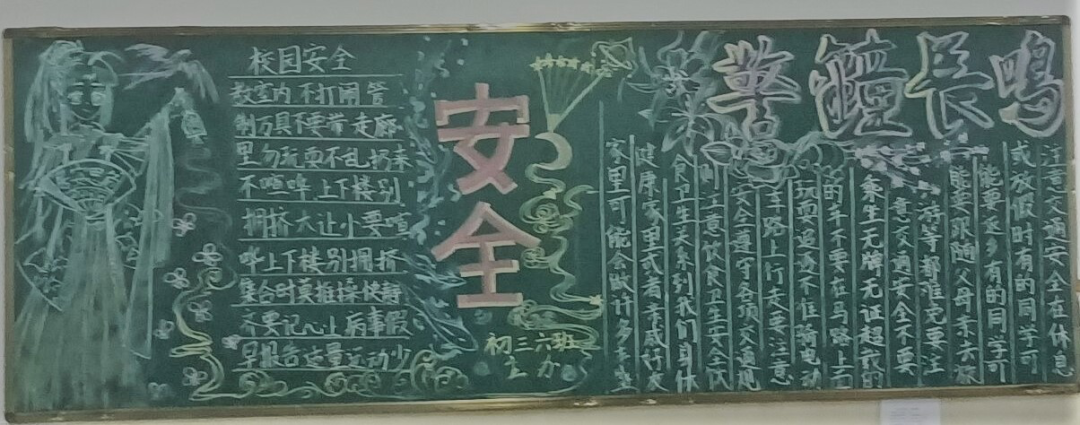 校园安全
教室内不打闹管
制刀具不要带走廊
里勿玩而不乱扔来
不喧哗上下楼别
拥挤大让小要喧
哗上下楼别拥挤
集合时莫推操快静
齐要记心上病事假
早报告适量运动少
安全
初三六班
主办
警鐘长鸣
注意交通安全在休息
或放假时有的同学可
能要返乡有的同学可
能要跟随父母亲去旅
游等都难免要注
意交通安全不要
乘坐无牌无证超载的
的车不要在马路上面
玩而追逐不准骑电动
车路上行走要注意
安全遵守各项交通规
则注意饮食卫生安全饮
食卫生关系到我们身体
健康家里或者亲戚好友
家里可能会做许多